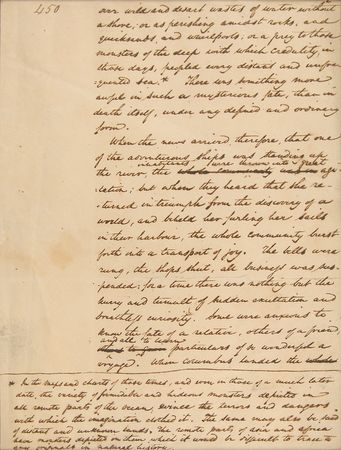 450
over wild and desert wastes of water without
a shore, or as perishing amidst rocks, and
quicksands, and whirlpools; or a prey to those
monsters of the deep with which credulity, in
those days, peopled every distant and unfre-
quented sea.* There was something more
awful in such a mysterious fate, than in
death itself, under any defined and ordinary
form.
When the news arrived, therefore, that one
of the adventurous ships was standing up
inhabitants were thrown into great
the river, the whole community was in agi-
tation; but when they heard that she re-
turned in triumph from the discovery of a
world, and beheld her furling her sails
in their harbour, the whole community burst
forth into a transport of joy. The bells were
rung, the shops shut, all business was sus-
pended: for a time there was nothing but the
hurry and tumult of sudden exultation and
breathless curiosity. Some were anxious to
know the fate of a relative, others of a friend,
and all to learn
particulars of so wonderful a
voyage. When Columbus landed the whole
* In the maps and charts of those times, and even in those of a much later
date, the variety of formidable and hideous monsters depicted in
all remote parts of the ocean, evince the terrors and dangers
with which the imagination clothed it. The same may also be said
of distant and unknown lands. The remote parts of Asia and Africa
have monsters depicted on them which it would be difficult to trace to
any originals in natural history.